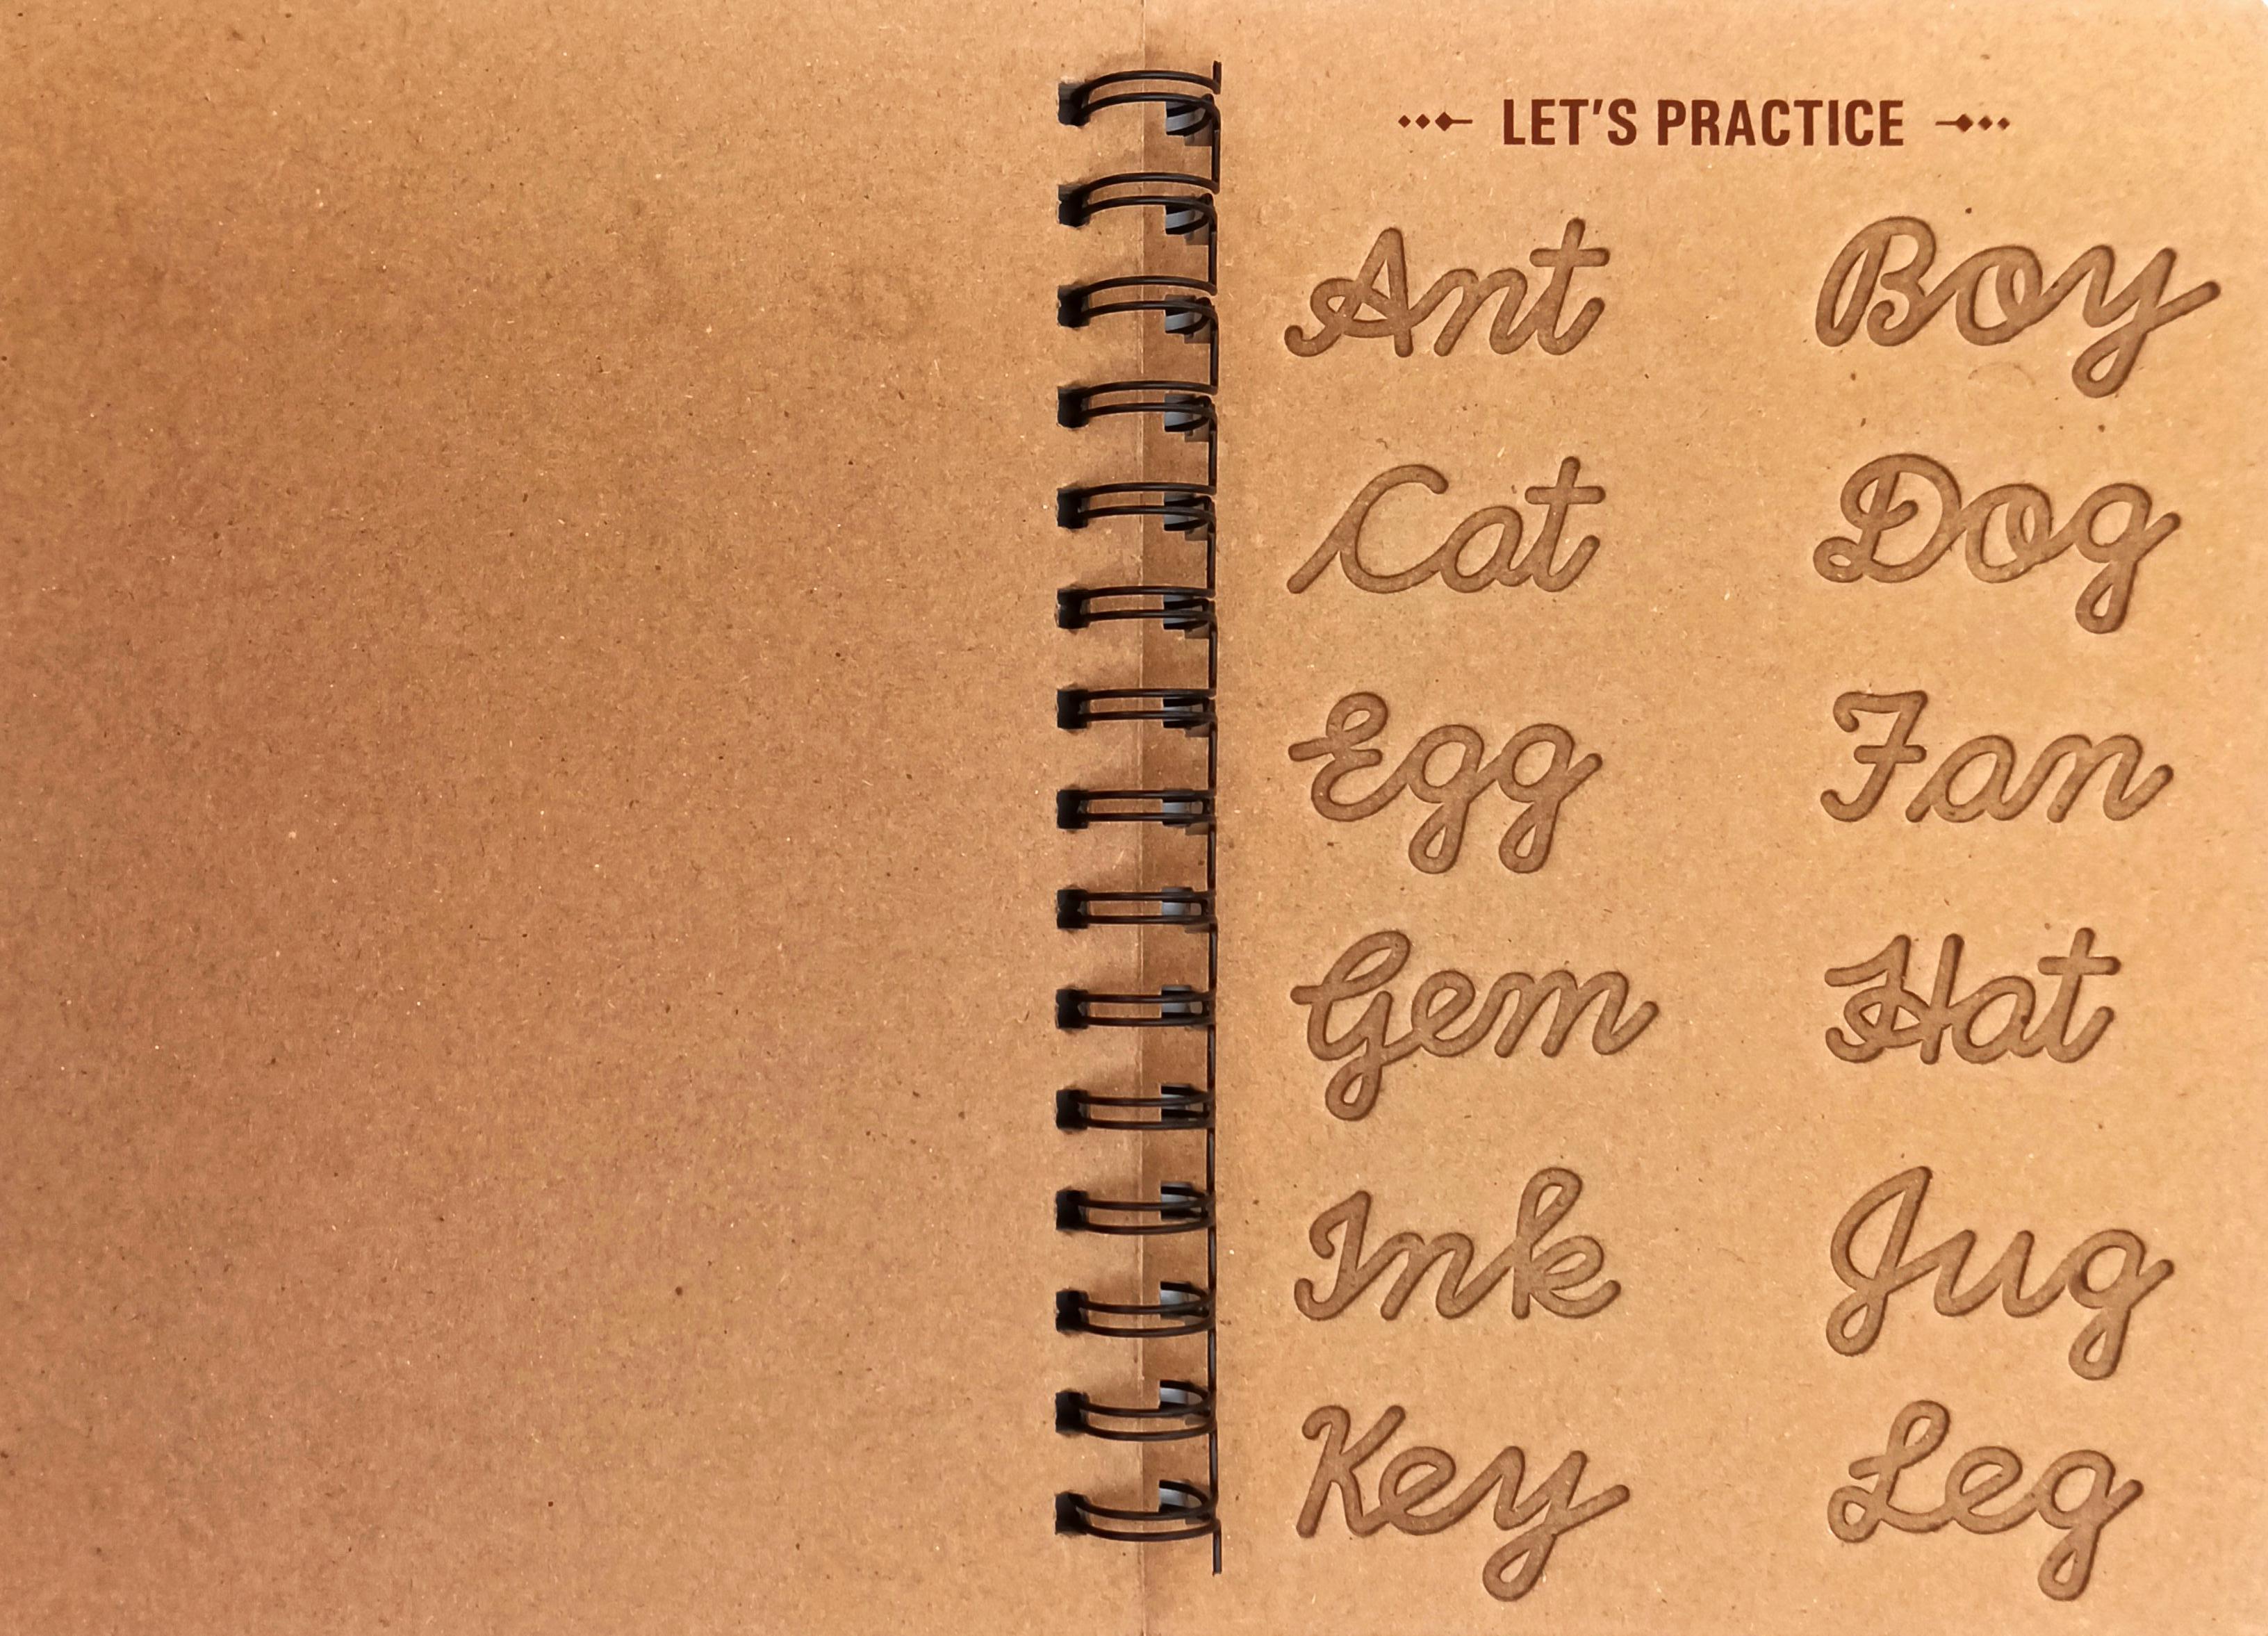 LET'S PRACTICE
Ant Boy
Cat Dog
Egg Fan
Gem Hat
Ink Jug
Key Leg